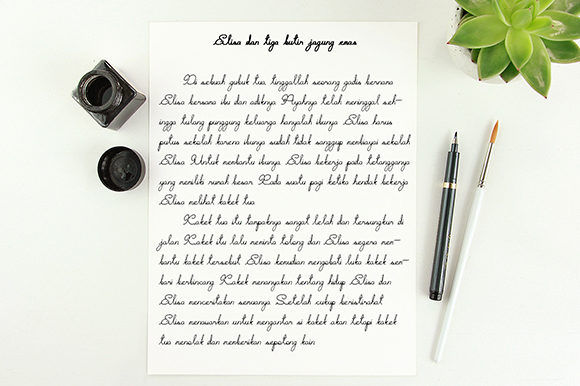 Elisa dan tiga butir jagung emas
Di sebuah gubuk tua, tinggallah seorang gadis bernama
Elisa bersama ibu dan adiknya. Ayahnya telah meninggal seh-
ingga tulang punggung keluarga hanyalah ibunya. Elisa harus
putus sekolah karena ibunya sudah tidak sanggup membiayai sekolah
Elisa. Untuk membantu ibunya, Elisa bekerja pada tetangganya
yang memiliki rumah besar. Pada suatu pagi ketika hendak bekerja
Elisa melihat kakek tua.
Kakek tua itu tampaknya sangat lelah dan tersungkur di
jalan. Kakek itu lalu meminta tolong dan Elisa segera mem-
bantu kakek tersebut. Elisa kemudian mengobati luka kakek sem-
bari berbincang. Kakek menanyakan tentang hidup Elisa dan
Elisa menceritakan semuanya. Setelah cukup beristirahat
Elisa menawarkan untuk mengantar si kakek akan tetapi kakek
tua menolak dan memberikan sepotong kain.